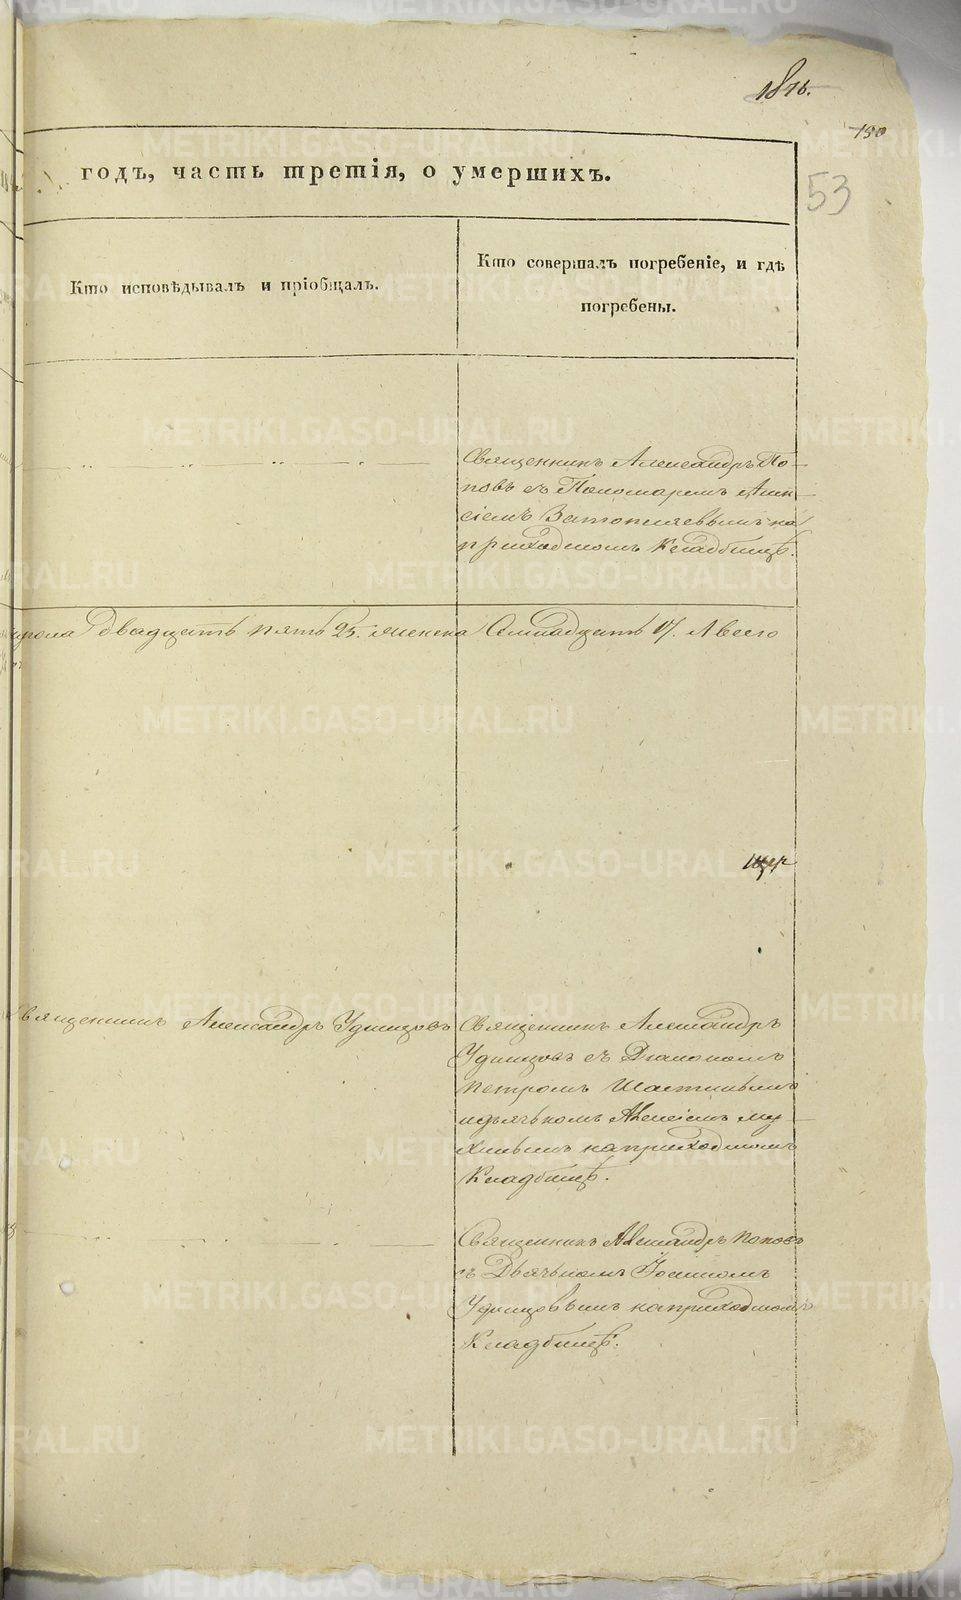 150
53
годъ, часть третія, о умершихъ.
Кто исповѣдывалъ и пріобщалъ.
Кто совершалъ погребеніе, и гдѣ
погребены.
Священникъ Александръ По-
повъ съ Пономаремъ Алек-
сіемъ на
приходскомъ Кладбищѣ.
пола двадцать пять 25. женска Семнадцать 17. А всего
Священникъ Александръ Удинцовъ
Священникъ Александръ
Удинцовъ съ Діакономъ
Петромъ
и дьячькомъ Алексіемъ Му-
хинымъ на приходскомъ
Кладбищѣ.
Священникъ Александръ Поповъ
съ Дьячькомъ Іоанномъ
Удинцовымъ на приходскомъ
Кладбищѣ.
METRIKI.GASO-URAL.RU